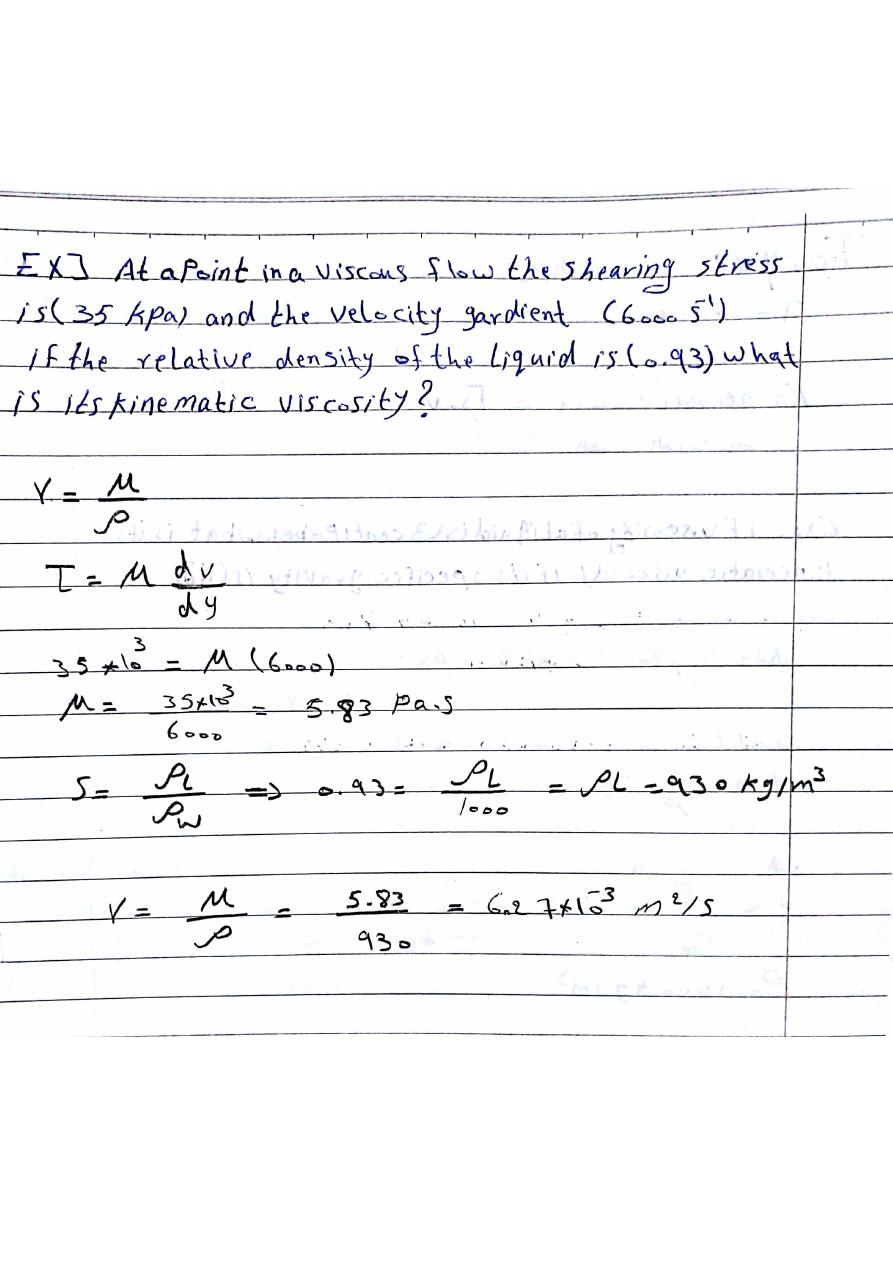 EX] At a Point in a viscous flow the shearing stress
is (35 kpa) and the velocity gardient (6000 s⁻¹)
if the relative density of the liquid is (0.93) what
is its kinematic viscosity?
ν = μ/ρ
τ = μ dv/dy
35*10³ = μ (6000)
μ = 35*10³/6000 = 5.83 pa.s
S = ρL/ρw ⇒ 0.93 = ρL/1000 = ρL = 930 kg/m³
ν = μ/ρ = 5.83/930 = 6.27*10⁻³ m²/s